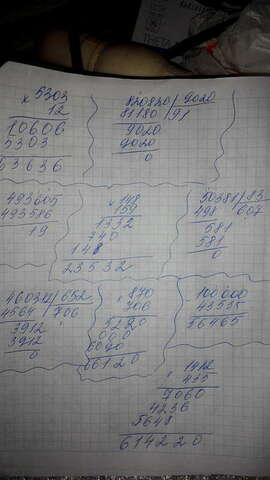 x 5303
12
10606
5303
63636
820820/9020
81180/91
9020
9020
0
493605
493586
19
x 148
159
1332
740
148
23532
50381/83
498 607
581
581
0
460312/652
4564 706
3912
3912
0
x 870
706
5220
000
6090
66120
-100000
83535
16465
1412
x 435
7060
4236
5648
614220